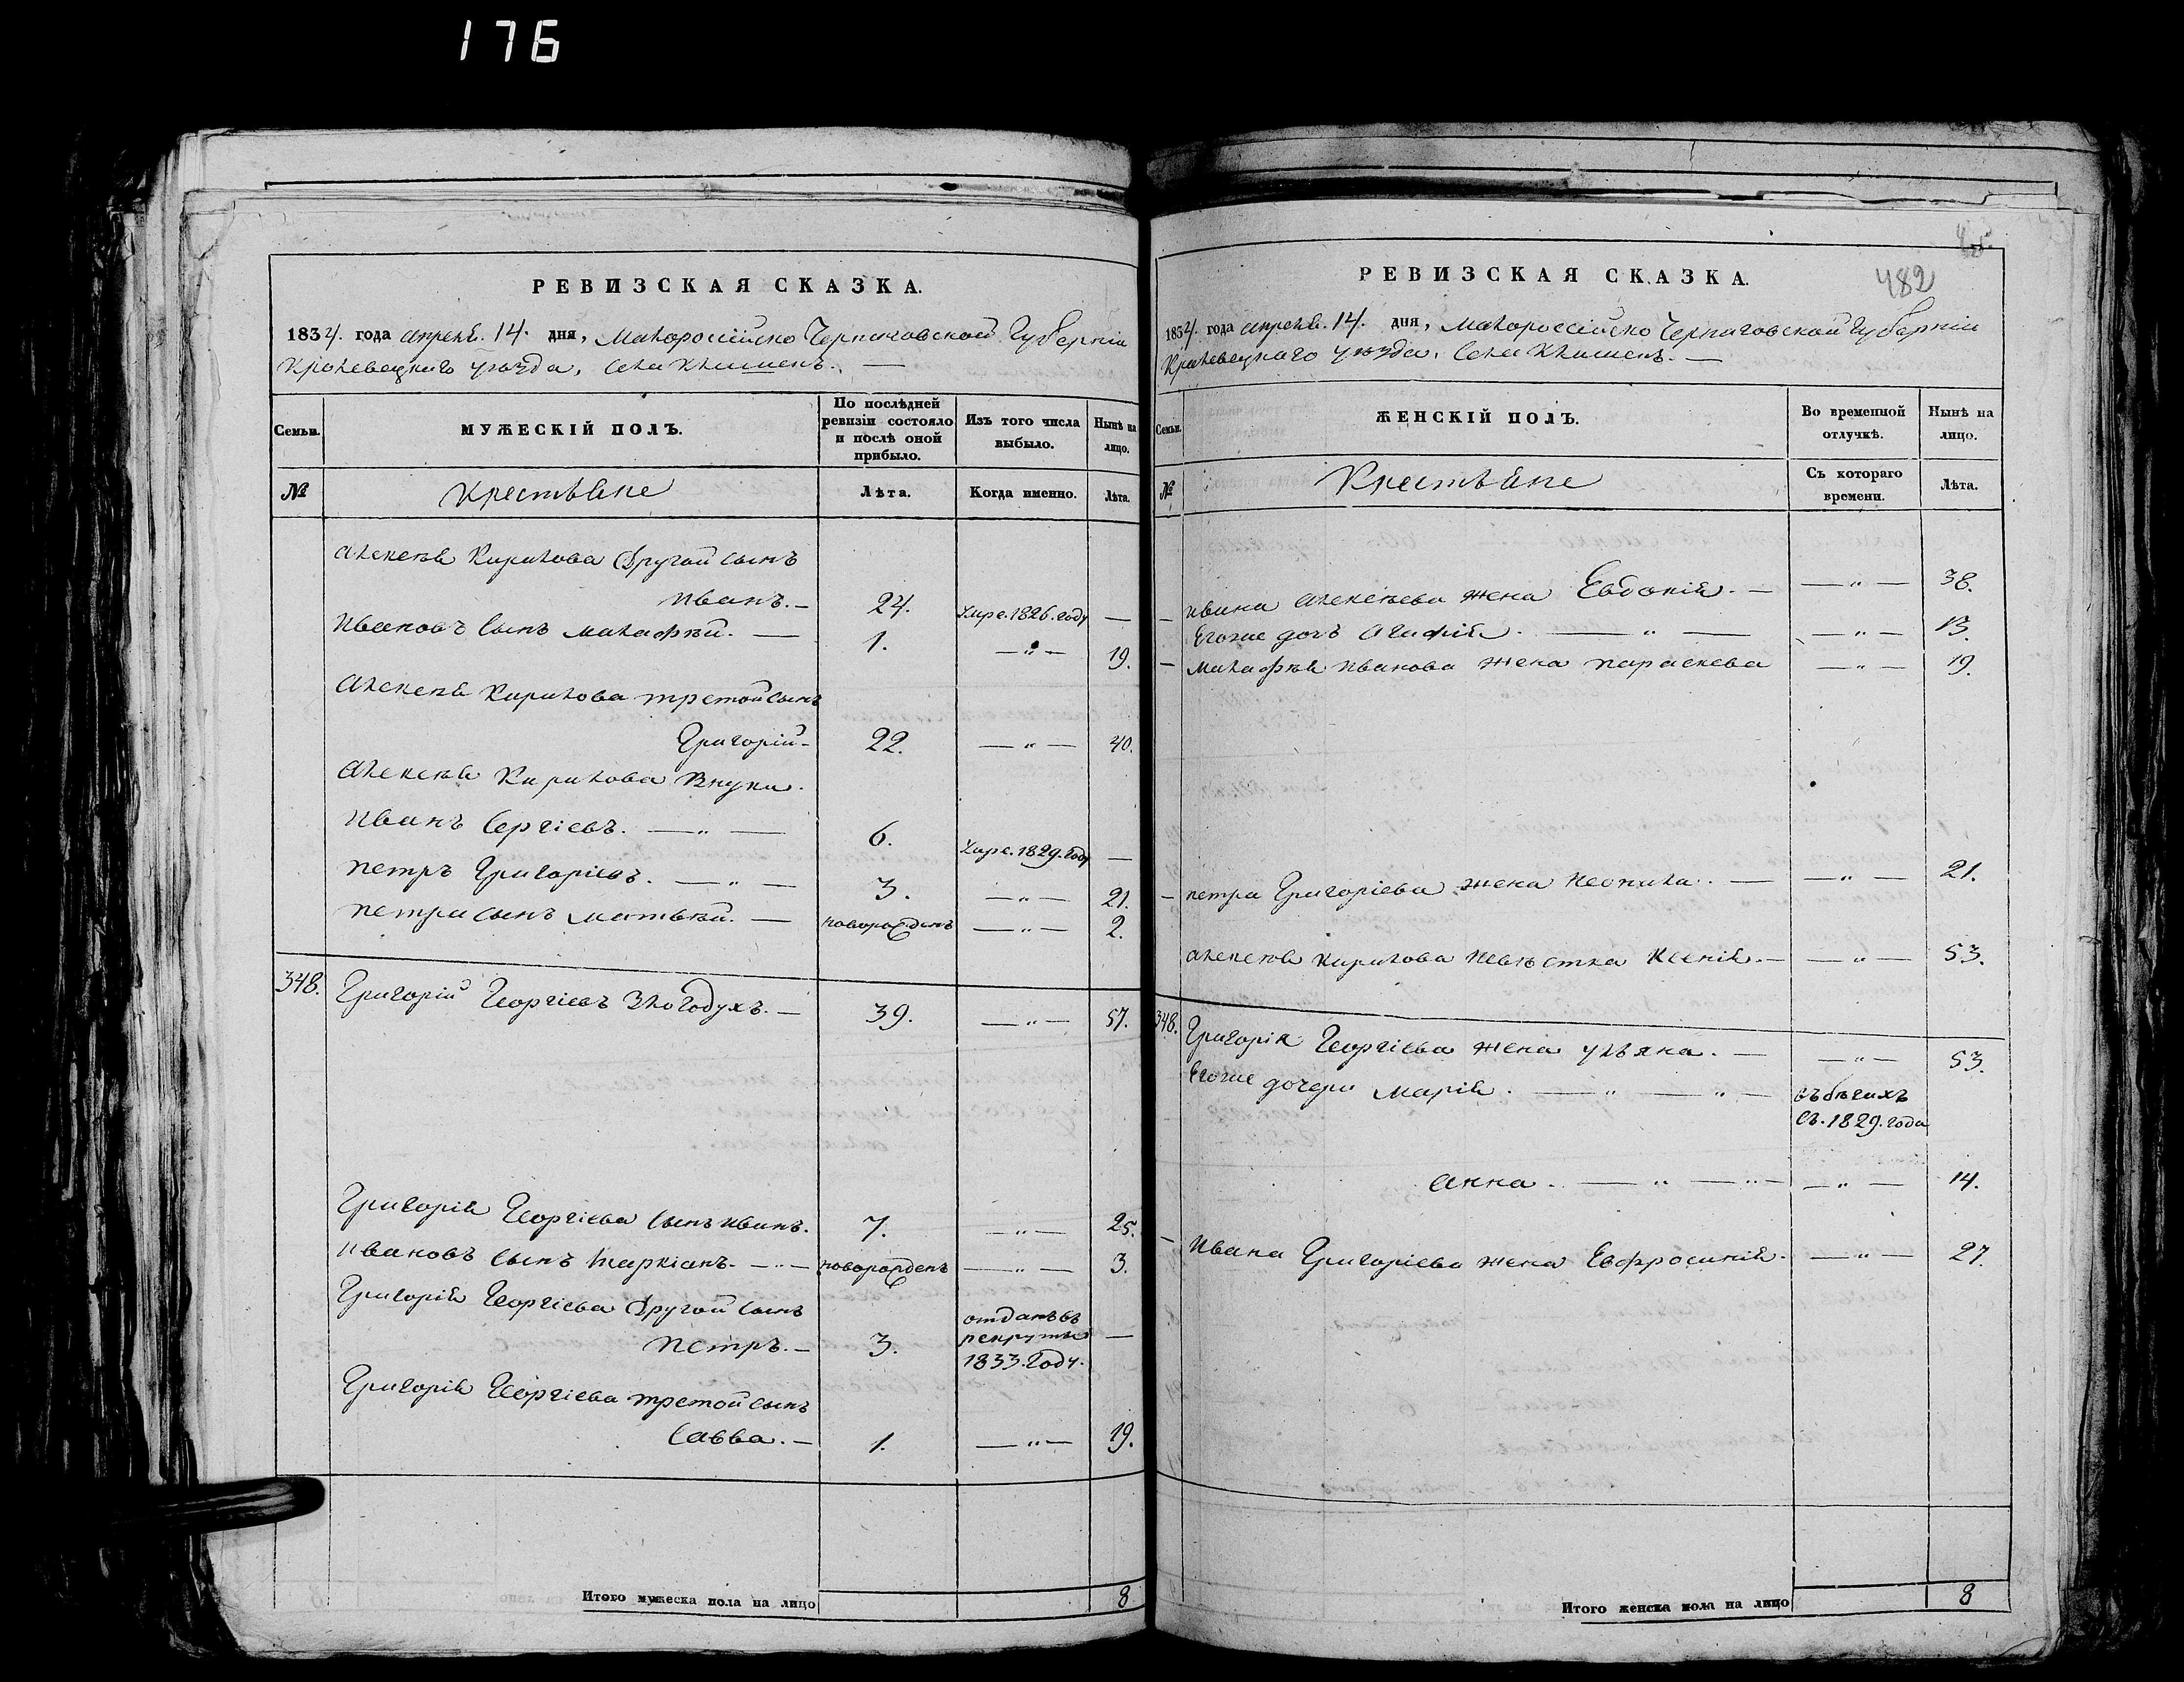 176
РЕВИЗСКАЯ СКАЗКА.
1834. года апреля. 14. дня, Малороссійско Черниговской Губерніи
Кролевецкаго уѣзда, Села Клишекъ. —
Семьи.
МУЖЕСКІЙ ПОЛЪ.
По послѣдней ревизіи состояло и послѣ оной прибыло.
Изъ того числа выбыло.
Нынѣ на лицо.
№
Крестьяне
Лѣта.
Когда именно.
Лѣта.
Алексѣя Кирилова Другой сынъ
Иванъ. — 24. Умре. 1826. году —
Ивановъ Сынъ Малафѣй. — 1. — „ — 19.
Алексѣя Кирилова третой Сынъ
Григорій — 22. — „ — 40.
Алексѣя Кирилова Внуки.
Иванъ Сергіевъ. — „ — 6. Умре. 1829. году —
Петръ Григоріевъ. — „ — 3. — „ — 21.
Петра Сынъ Матвѣй. — новорожденъ — „ — 2.
348. Григорій Георгіевъ Злогодухъ. — 39. — „ — 57.
Григорія Георгіева Сынъ Иванъ. 7. — „ — 25.
Ивановъ Сынъ Маркіанъ. — „ — новорожденъ — „ — 3.
Григорія Георгіева Другой Сынъ
Петръ. — 3. отданъ въ рекруты 1833. году. —
Григорія Георгіева третой Сынъ
Савва. — 1. — „ — 19.
Итого мужеска пола на лицо 8
482
РЕВИЗСКАЯ СКАЗКА.
1834. года апреля. 14. дня, Малороссійско Черниговской Губерніи
Кролевецкаго уѣзда, Села Клишекъ. —
Семьи.
ЖЕНСКІЙ ПОЛЪ.
Во временной отлучкѣ.
Нынѣ на лицо.
№
Крестьяне
Съ котораго времени.
Лѣта.
— Ивана Алексѣева жена Евдокія. — — „ — 38.
Егоже дочь Агафія. — „ — — „ — 13.
— Малафѣя Иванова жена Параскева — „ — 19.
— Петра Григоріева жена Неонила. — — „ — 21.
Алексѣя Кирилова невѣстка Ксенія. — — „ — 53.
348. Григорія Георгіева жена Ульяна. — — „ — 53.
Егоже дочери Марія. — „ — „ — въ бѣгахъ
съ. 1829. года
Анна. — „ — „ — — „ — 14.
— Ивана Григоріева жена Евфросинія. — „ — 27.
Итого женска пола на лицо 8